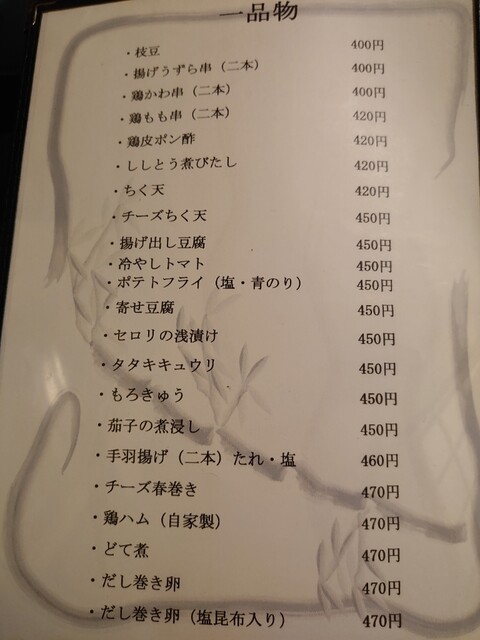 一品物
・枝豆 400円
・揚げうずら串（二本） 400円
・鶏かわ串（二本） 400円
・鶏もも串（二本） 420円
・鶏皮ポン酢 420円
・ししとう煮びたし 420円
・ちく天 420円
・チーズちく天 450円
・揚げ出し豆腐 450円
・冷やしトマト 450円
・ポテトフライ（塩・青のり） 450円
・寄せ豆腐 450円
・セロリの浅漬け 450円
・タタキキュウリ 450円
・もろきゅう 450円
・茄子の煮浸し 450円
・手羽揚げ（二本）たれ・塩 460円
・チーズ春巻き 470円
・鶏ハム（自家製） 470円
・どて煮 470円
・だし巻き卵 470円
・だし巻き卵（塩昆布入り） 470円